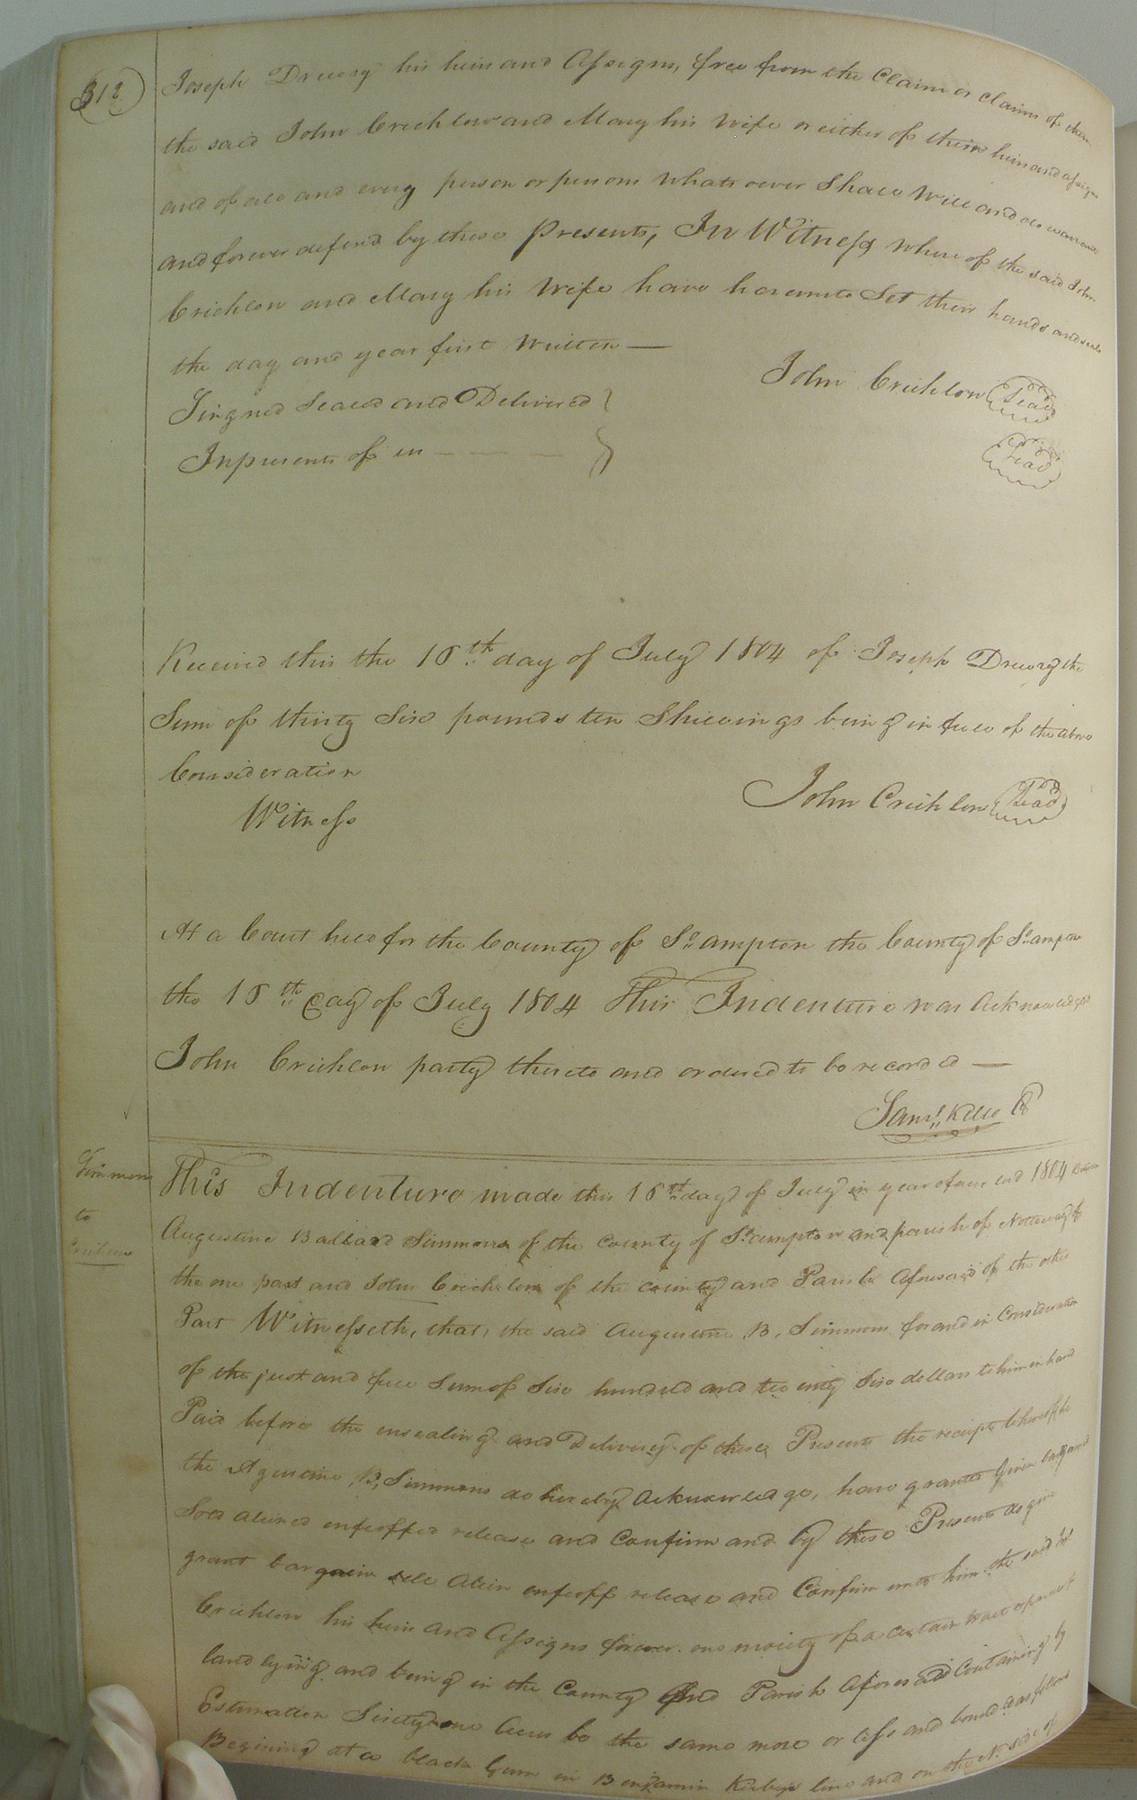 312
Joseph Drewry his heirs and Assigns, free from the Claim or claims of them
the said John Crichlow and Mary his Wife or either of their heirs and assigns
and of all and every person or persons Whatsoever Shall Will and do warrant
and forever defend by these Presents, In Witness whereof the said John
Crichlow and Mary his Wife have hereunto Set their hands and seals
the day and year first Written —
John Crichlow Seal
Singned Sealed and Delivered }
Seal
In presents of us - - - - }
Received this the 16th day of July 1804 of Joseph Drewry the
Sum of thirty Six pounds ten Shillings being in full of the above
Consideration
John Crichlow Seal
Witness
At a Court held for the County of So.ampton the County of So.ampton
the 16th Day of July 1804 This Indenture was Acknowledged
John Crichlow party thereto and ordered to be recorded —
Saml. Kello C
Simmons
to
Crichlow
This Indenture made this 16th day of July in year of our lord 1804
Augustine Ballard Simmons of the county of So.ampton and parish of Nottoway of
the one part and John Crichelow of the county and Parish Aforesaid of the other
Part Witnesseth, that, the said Augustine B. Simmons for and in Consideration
of the just and full Sum of Six hundred and twenty Six dollars to him in hand
Paid before the ensealing and Delivery of these Presents the receipt whereof he
the Agustine B. Simmons do hereby Acknowledge, have granted given bargained
Sold aliened enfeoffed release and Confirm and by these Presents do give
grant bargain sell Alien enfeoff release and Confirm unto him the said
Crichlow his heirs and Assigns forever one moiety of a certain tract
land lying and being in the County and Parish Aforesaid Containing by
Estimation Sixty one Acres be the same more or less and bound as follows
Begining at a black Gum in Benjamin Kirbys line and on the No side of